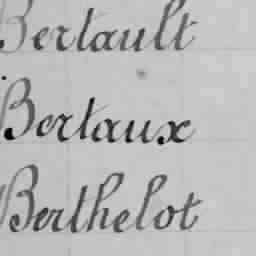 Bertault
Bertaux
Berthelot